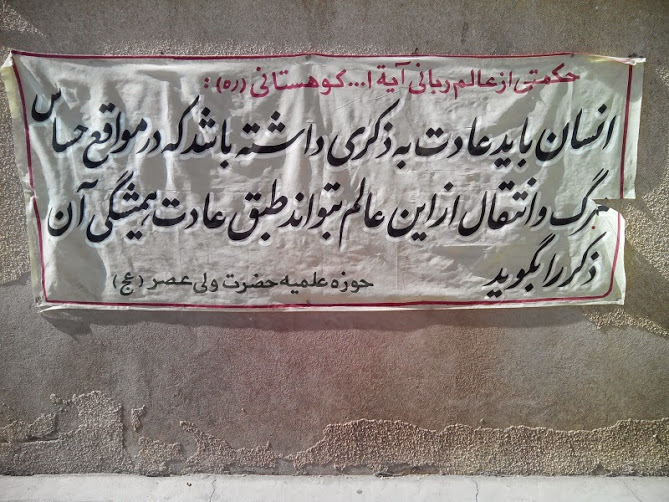 حکمتی از عالم ربانی آیة ا... کوهستانی (ره) :
انسان باید عادت به ذکری داشته باشد که در مواقع حساس
مرگ و انتقال از این عالم بتواند طبق عادت همیشگی آن
ذکر را بگوید
حوزه علمیه حضرت ولی عصر (عج)